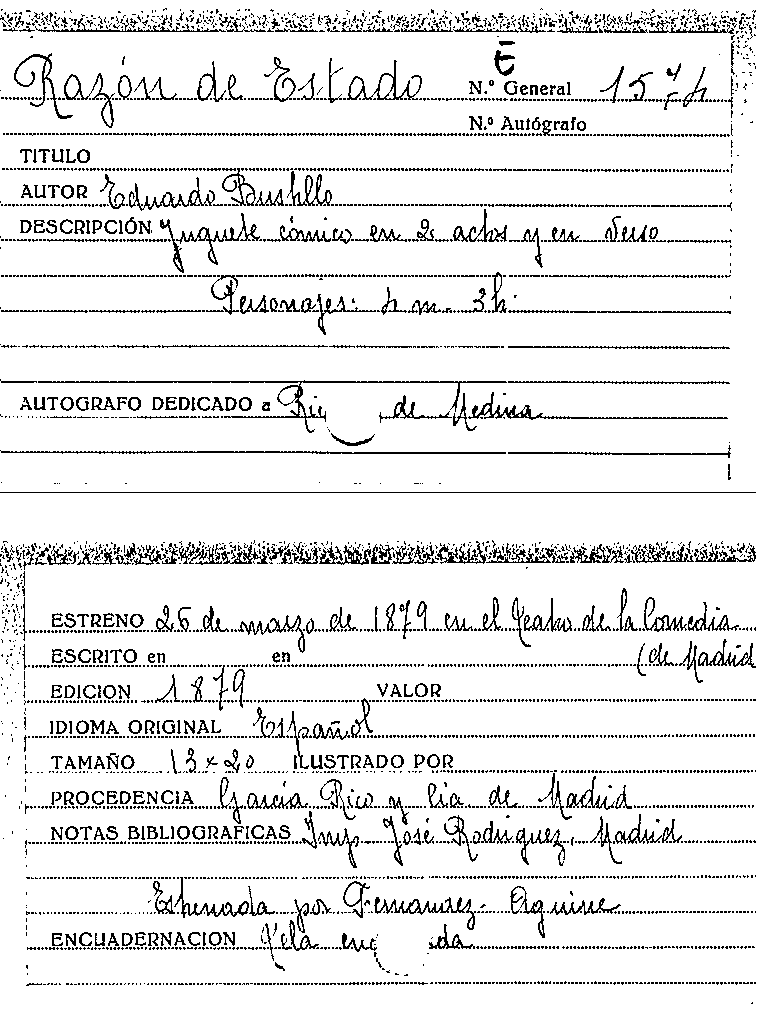 Razón de Estado E
N.º General 1574
N.º Autógrafo
TITULO
AUTOR Eduardo Bustillo
DESCRIPCIÓN Juguete cómico en 2 actos y en verso
Personajes: 4 m. 3 h.
AUTOGRAFO DEDICADO a de Medina
ESTRENO 26 de marzo de 1879 en el Teatro de la Comedia
ESCRITO en en (de Madrid
EDICION 1879 VALOR
IDIOMA ORIGINAL Español
TAMAÑO 13 x 20 ILUSTRADO POR
PROCEDENCIA García Rico y Cia. de Madrid
NOTAS BIBLIOGRAFICAS Imp. José Rodriguez, Madrid
Estrenada por Fernandez-
ENCUADERNACION Tela